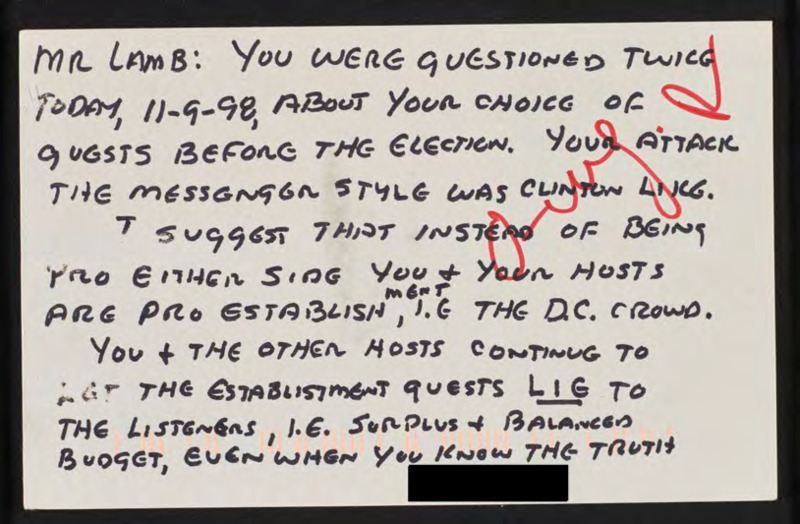 MR LAMB: YOU WERE QUESTIONED TWICE
TODAY, 11-9-98, ABOUT YOUR CHOICE OF
GUESTS BEFORE THE ELECTION. YOUR ATTACK
THE MESSENGER STYLE WAS CLINTON LIKE.
I SUGGEST THAT INSTEAD OF BEING
PRO EITHER SIDE YOU + YOUR HOSTS
ARE PRO ESTABLISHMENT, I.E THE D.C. CROWD.
YOU + THE OTHER HOSTS CONTINUE TO
LET THE ESTABLISTMENT GUESTS LIE TO
THE LISTENERS, I.E. SURPLUS + BALANCED
BUDGET, EVEN WHEN YOU KNOW THE TRUTH